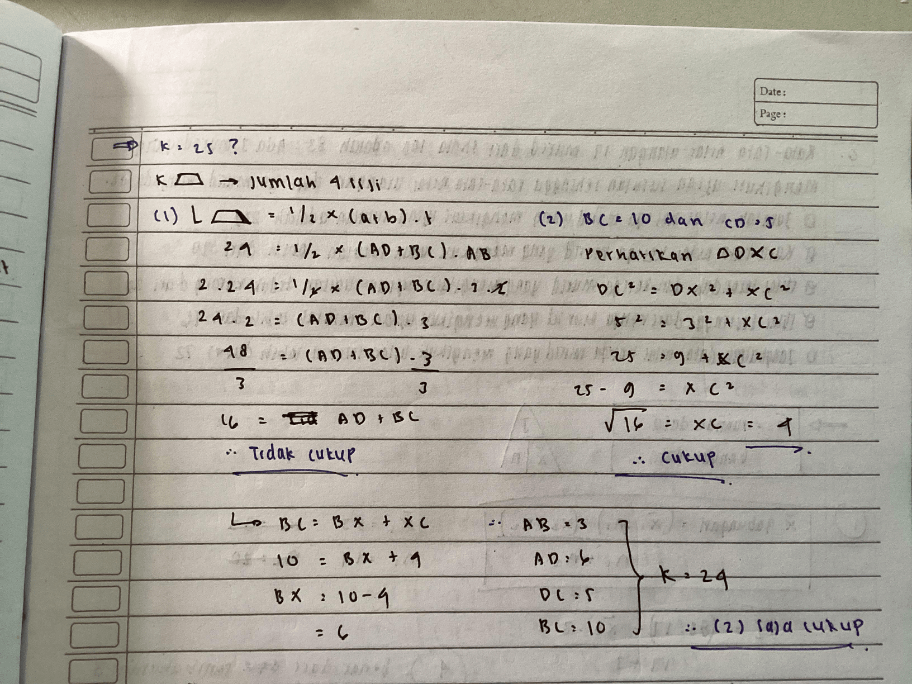 Date:
Page:
⇒ K = 25 ?
K → Jumlah 4 sisi
(1) L = 1/2 × (a+b) . t
24 = 1/2 × (AD+BC) . AB
2 . 24 = 1/2 × (AD+BC) . 3 . 2
24 . 2 = (AD+BC) . 3
48 = (AD+BC) . 3
3 3
16 = AD + BC
∴ Tidak cukup
(2) BC = 10 dan CD = 5
Perhatikan △DXC
DC² = DX² + XC²
5² = 3² + XC²
25 = 9 + XC²
25 - 9 = XC²
√16 = XC = 4
∴ cukup
↳ BC = BX + XC
10 = BX + 4
BX = 10-4
= 6
∴ AB = 3
AD = 6
DC = 5
BC = 10
K = 24
∴ (2) saja cukup